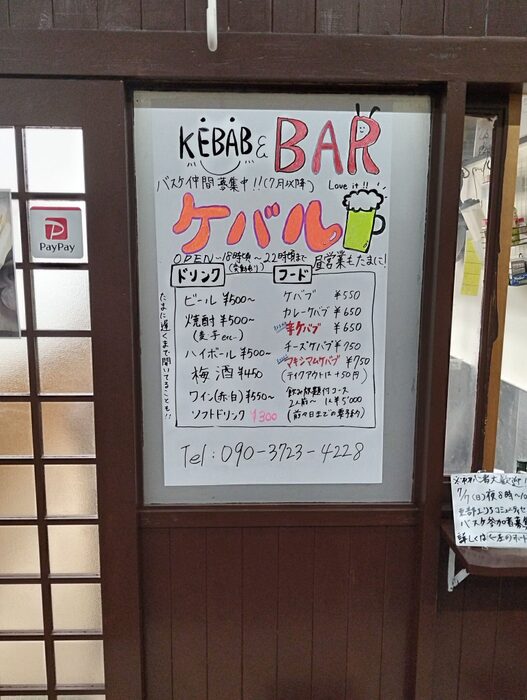 KEBAB & BAR
バスケ仲間募集中!!(7月以降)
Love it!!
ケバル
OPEN…18時頃〜22時頃まで
(変動有り)
昼営業もたまに!
たまに遅くまで開いてることも!!
ドリンク
ビール ¥500〜
焼酎 ¥500〜
(麦,芋 etc…)
ハイボール ¥500〜
梅酒 ¥450
ワイン(赤・白) ¥550〜
ソフトドリンク ¥300
フード
ケバブ ¥550
カレーケバブ ¥650
辛ケバブ ¥650
チーズケバブ ¥750
マキシマムケバブ ¥750
(テイクアウトは+50円)
飲み放題付コース
2人前〜 1人¥5'000
(前々日までの要予約)
Tel: 090-3723-4228
PayPay
7/7(日)夜8時〜10
バスケ参加者募集